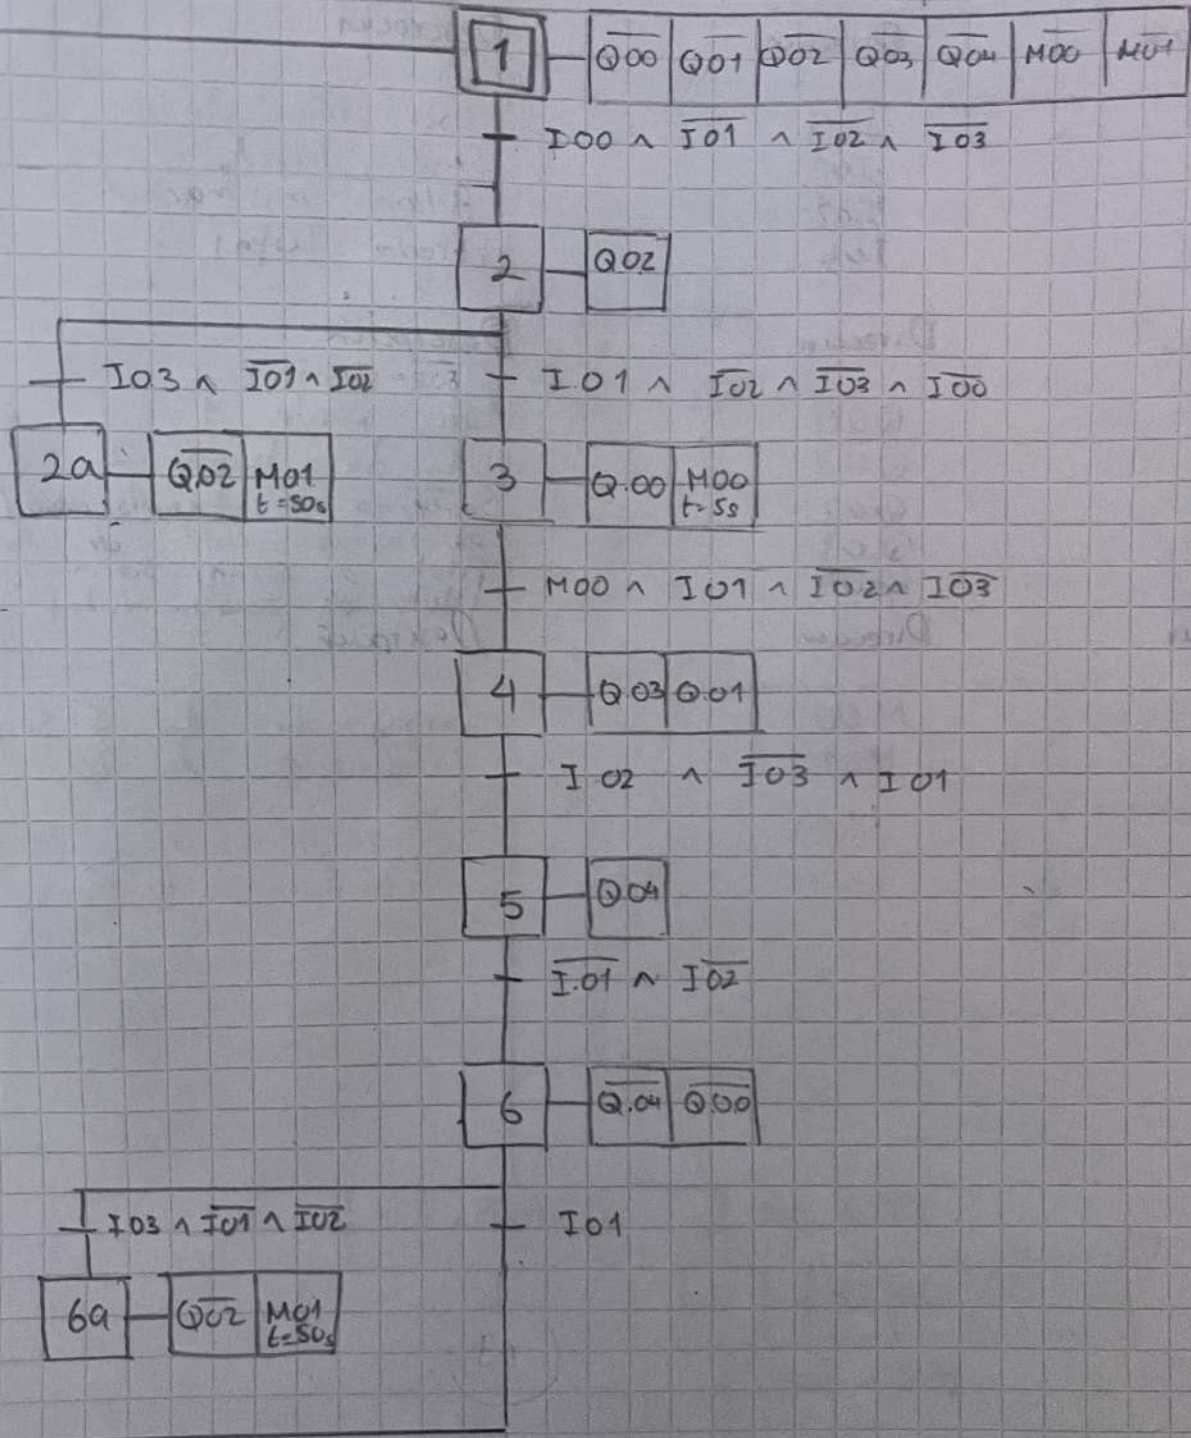 1 Q̅0̅0̅ Q̅0̅1̅ Q̅0̅2̅ Q̅0̅3̅ Q̅0̅4̅ M̅0̅0̅ M̅0̅1̅
I00 ∧ I̅0̅1̅ ∧ I̅0̅2̅ ∧ I̅0̅3̅
2 Q02
I03 ∧ I̅0̅1̅ ∧ I̅0̅2̅
I01 ∧ I̅0̅2̅ ∧ I̅0̅3̅ ∧ I̅0̅0̅
2a Q̅.0̅2̅ M01
t=50s
3 Q.00 M00
t=5s
M00 ∧ I01 ∧ I̅0̅2̅ ∧ I̅0̅3̅
4 Q.03 Q.01
I02 ∧ I̅0̅3̅ ∧ I01
5 Q04
I̅.0̅1̅ ∧ I̅0̅2̅
6 Q̅.0̅4̅ Q̅.0̅0̅
I03 ∧ I̅0̅1̅ ∧ I̅0̅2̅
I01
6a Q̅0̅2̅ M01
t=50s